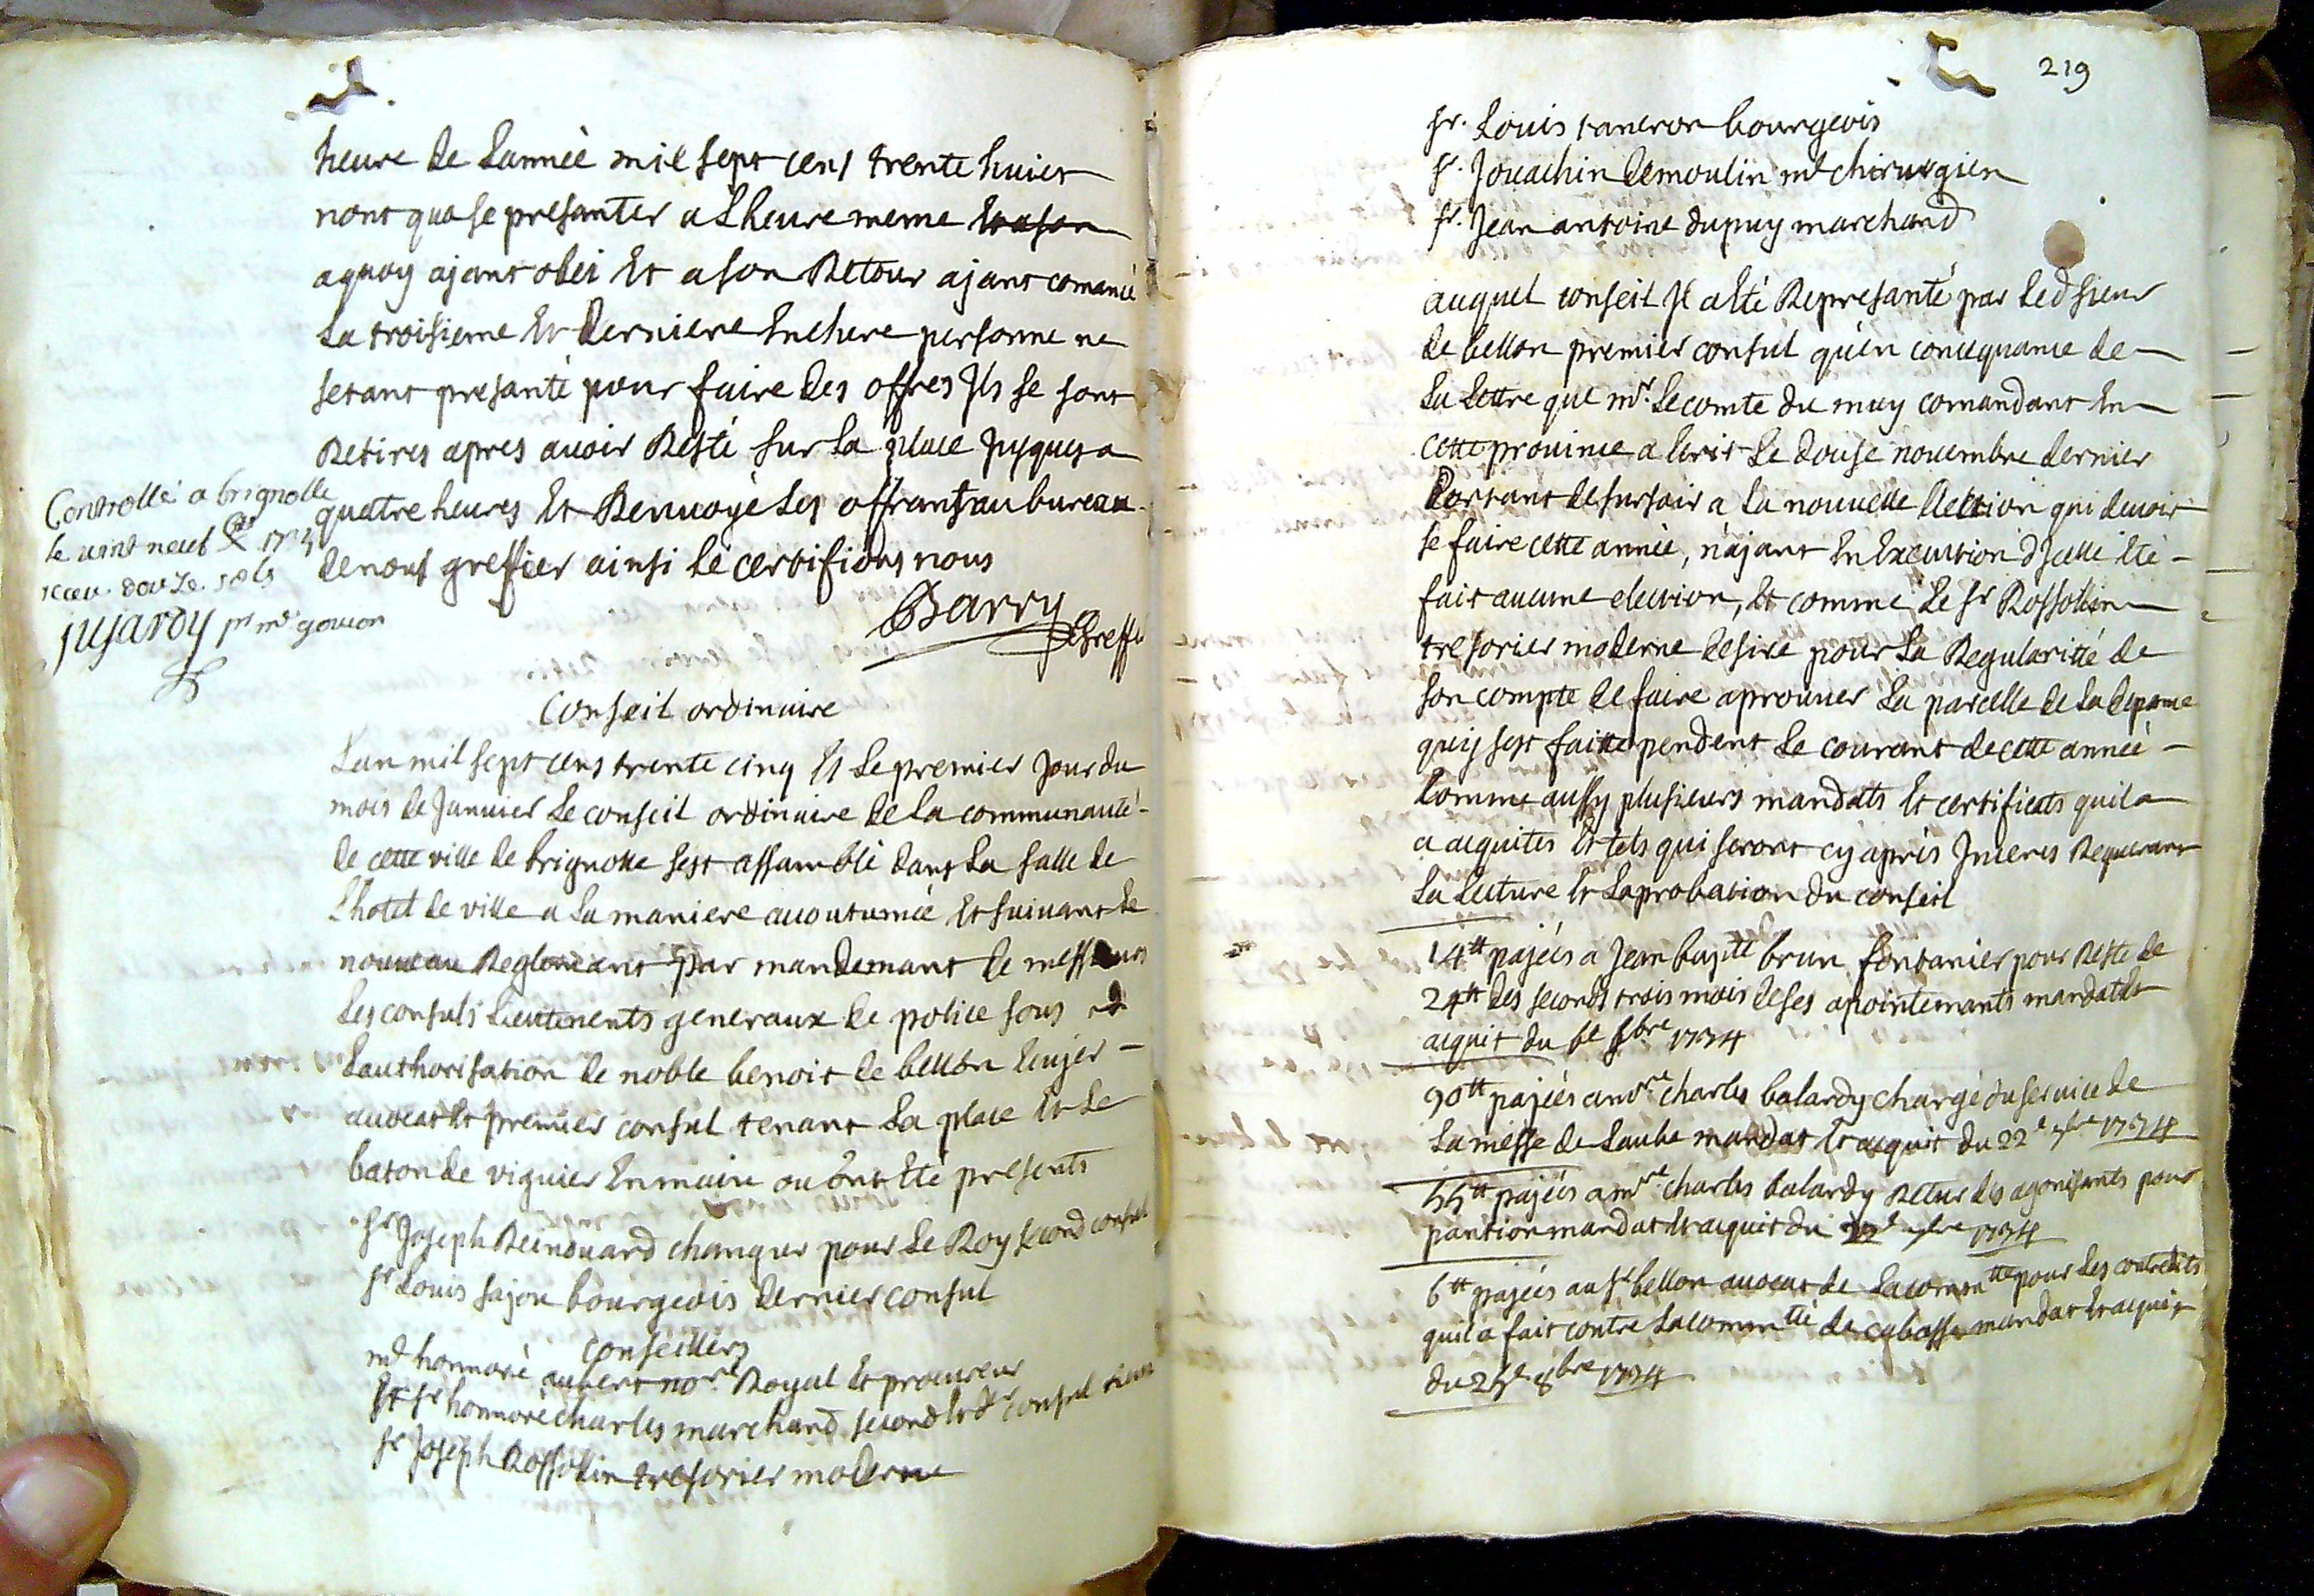 heure de Lannèe mil sept cens trente huict
nont qua se presanter a Lheure meme
aquoy ajant obei Et a son Retour ajant comancè
La troisieme Et derniere Enchere personne ne
setant presanté pour faire des offres Jls se sont
Retires apres auoir Resté sur La place Jusques a
quatre heures Et Renuoyé Les offrants au bureau
de nous greffier ainsi le certifions nous
Barry Greffr
Controllé a brignolle
le vint neuf
receu douze sols
jujardy pr mr gouion
Conseil ordinaire
Lan mil sept cens trente cinq Et Le premier Jour du
mois de Januier Le conseil ordinaire de La communauté
de cette ville de brignolle sest assamblé dans La salle de
Lhotel de ville a La maniere acoutumée Et suiuant Le
nouueau Reglemant par mandemant de messieurs
Les consuls Lieutenents generaux de police sous
Lauthorisation de noble benoit de bellon Ecujer
auocat Et premier consul tenant La place Et Le
baton de viguier En maire ou ont Eté presents
sr Joseph Reinouard changur pour Le Roy second consul
sr Louis sajou bourgeois dernier consul
Conseillers
me honnoré aubert nore Royal Et procureur
Et sr honnoré charles marchand second Et dr consul vieux
sr Joseph Rossolin tresorier moderne
219
sr. Louis taneron bourgeois
sr. Jouachin demoulin me chirurgien
sr. Jean antoine dupuy marchand
auquel conseil Jl a Eté Represanté par Led sieur
de bellon premier consul qu'en consequance de
La Lettre que mr. Le comte du muy comandant En
cette prouince a Ecrit Le douse nouembre dernier
Portant de sursoir a La nouuelle Election qui deuoit
se faire cette année, n'ajant En Execution dJcelle Eté
fait aucune election, Et comme Le sr Rossolin
tresorier moderne desire pour La Regularité de
son compte de faire aprouuer La parcelle de La depance
quij sest faitte pendent Le courant de cette année
Comme aussy plusieurs mandats Et certificats quil a
a acquites Et tels qui seront cy après Jnceres Requerant
La Lecture Et Laprobation du conseil
14tt pajées a Jean baptte brun fontanier pour Reste de
24tt des seconds trois mois de ses apointemants mandat Et
acquit du 6e 8bre 1734
90tt pajées a mre charles balardy chargé du seruice de
La messe de Laube mandat Et acquit du 22e 7bre 1734
55tt pajées a mre charles balardy Retur des agonisants pour
pantion mandat Et acquit du 22e 7bre 1734
6tt pajées au sr bellon auocat de La commtté pour Les contredits
quil a fait contre La commtté de cabasse mandat Et acquit
du 25e 8bre 1734